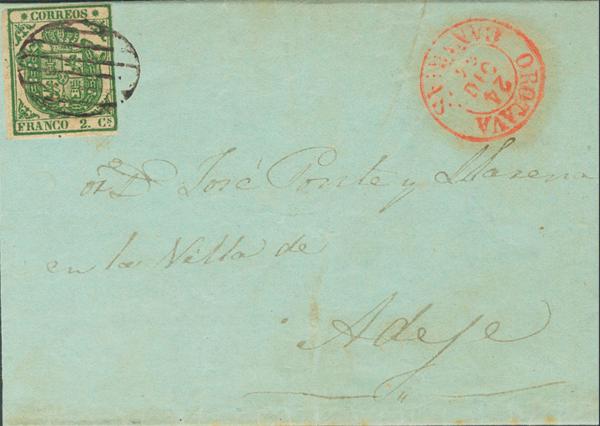 CORREOS
FRANCO 2. Cs
OROTAVA
CANARIAS
24
Sr D José Ponte y Llarena
en la Villa de
Adeje